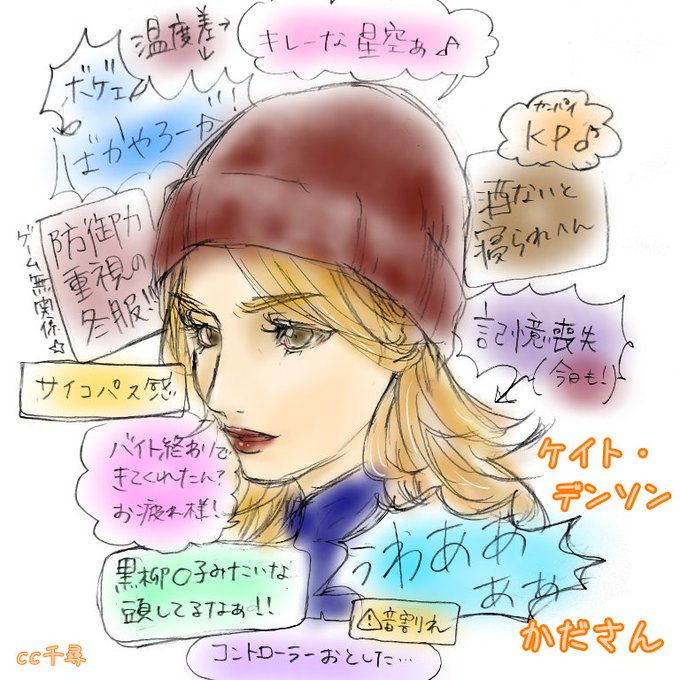 温度差
キレーな星空ぁ♪
ボゲェ
ばかやろーが!!
カンパイ
KP♪
酒ないと
寝られへん
防御力
重視の
冬服!!
ゲーム無関係☆
記憶喪失
(今日も!)
サイコパス感
バイト終わりで
きてくれたん?
お疲れ様!
ケイト・
デンソン
うわああ
ああ
黒柳〇子みたいな
頭してるなぁ!!
⚠音割れ
かださん
コントローラーおとした…
cc千尋